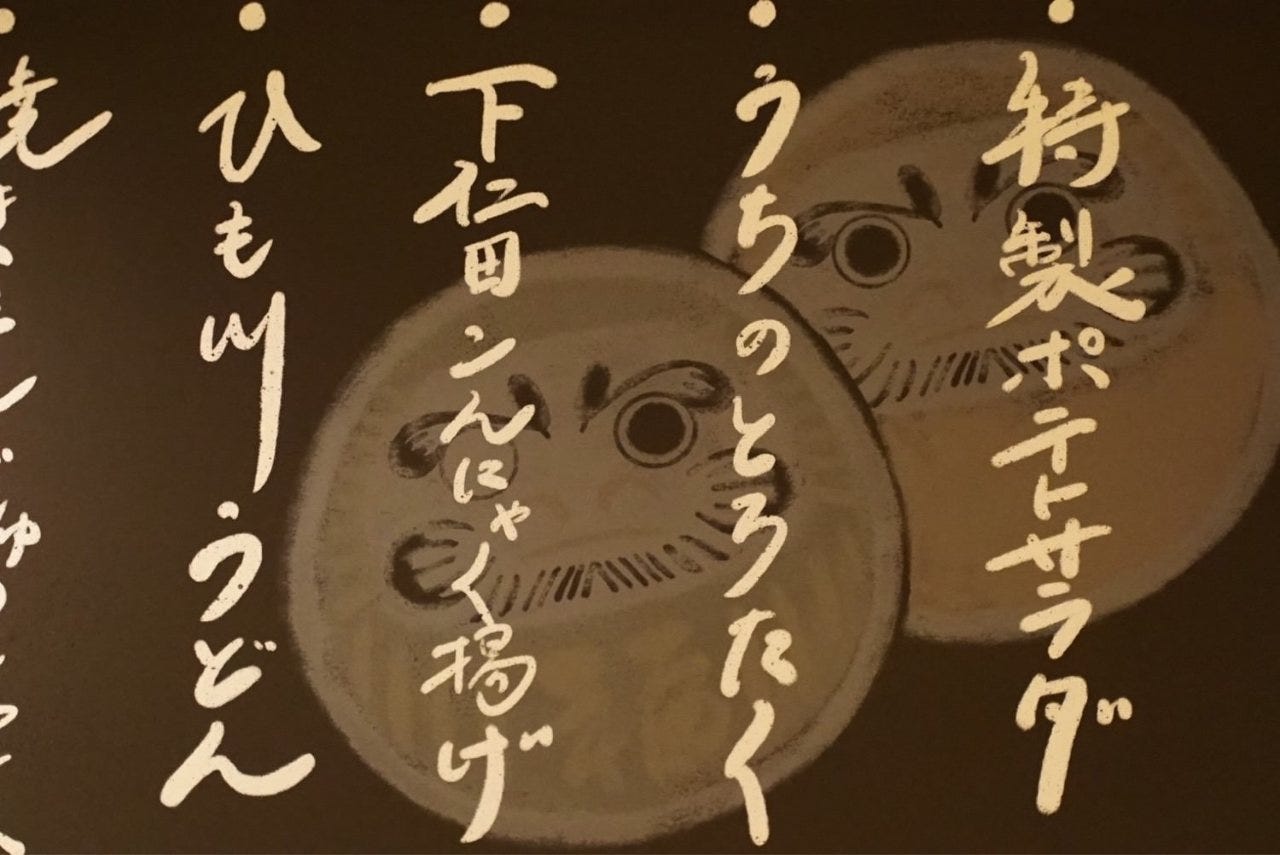 ・特製ポテトサラダ
・うちのとろたく
・下仁田こんにゃく揚げ
・ひも川うどん
・焼きまんじゅう